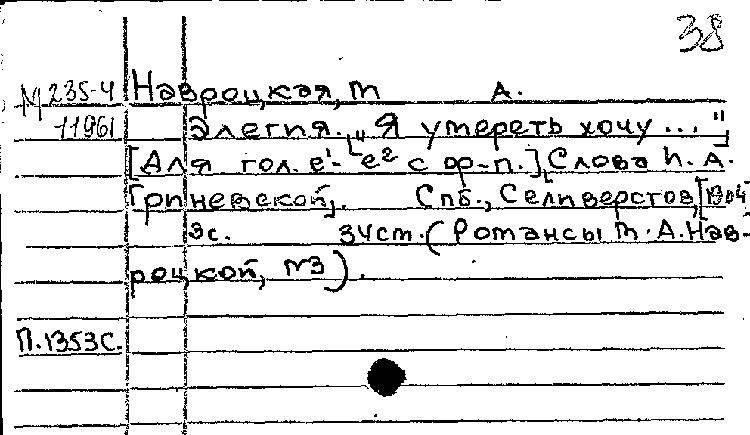 38
М 235-4 Навроцкая, т А.
11961 Элегия. "Я умереть хочу..."
[Для гол. e¹- e² с ф-п.] Слова И. А.
Гриневской. Спб., Селиверстов, [1904]
3с. 34см. (Романсы т. А. Нав-
роцкой, №3).
П.1353С.